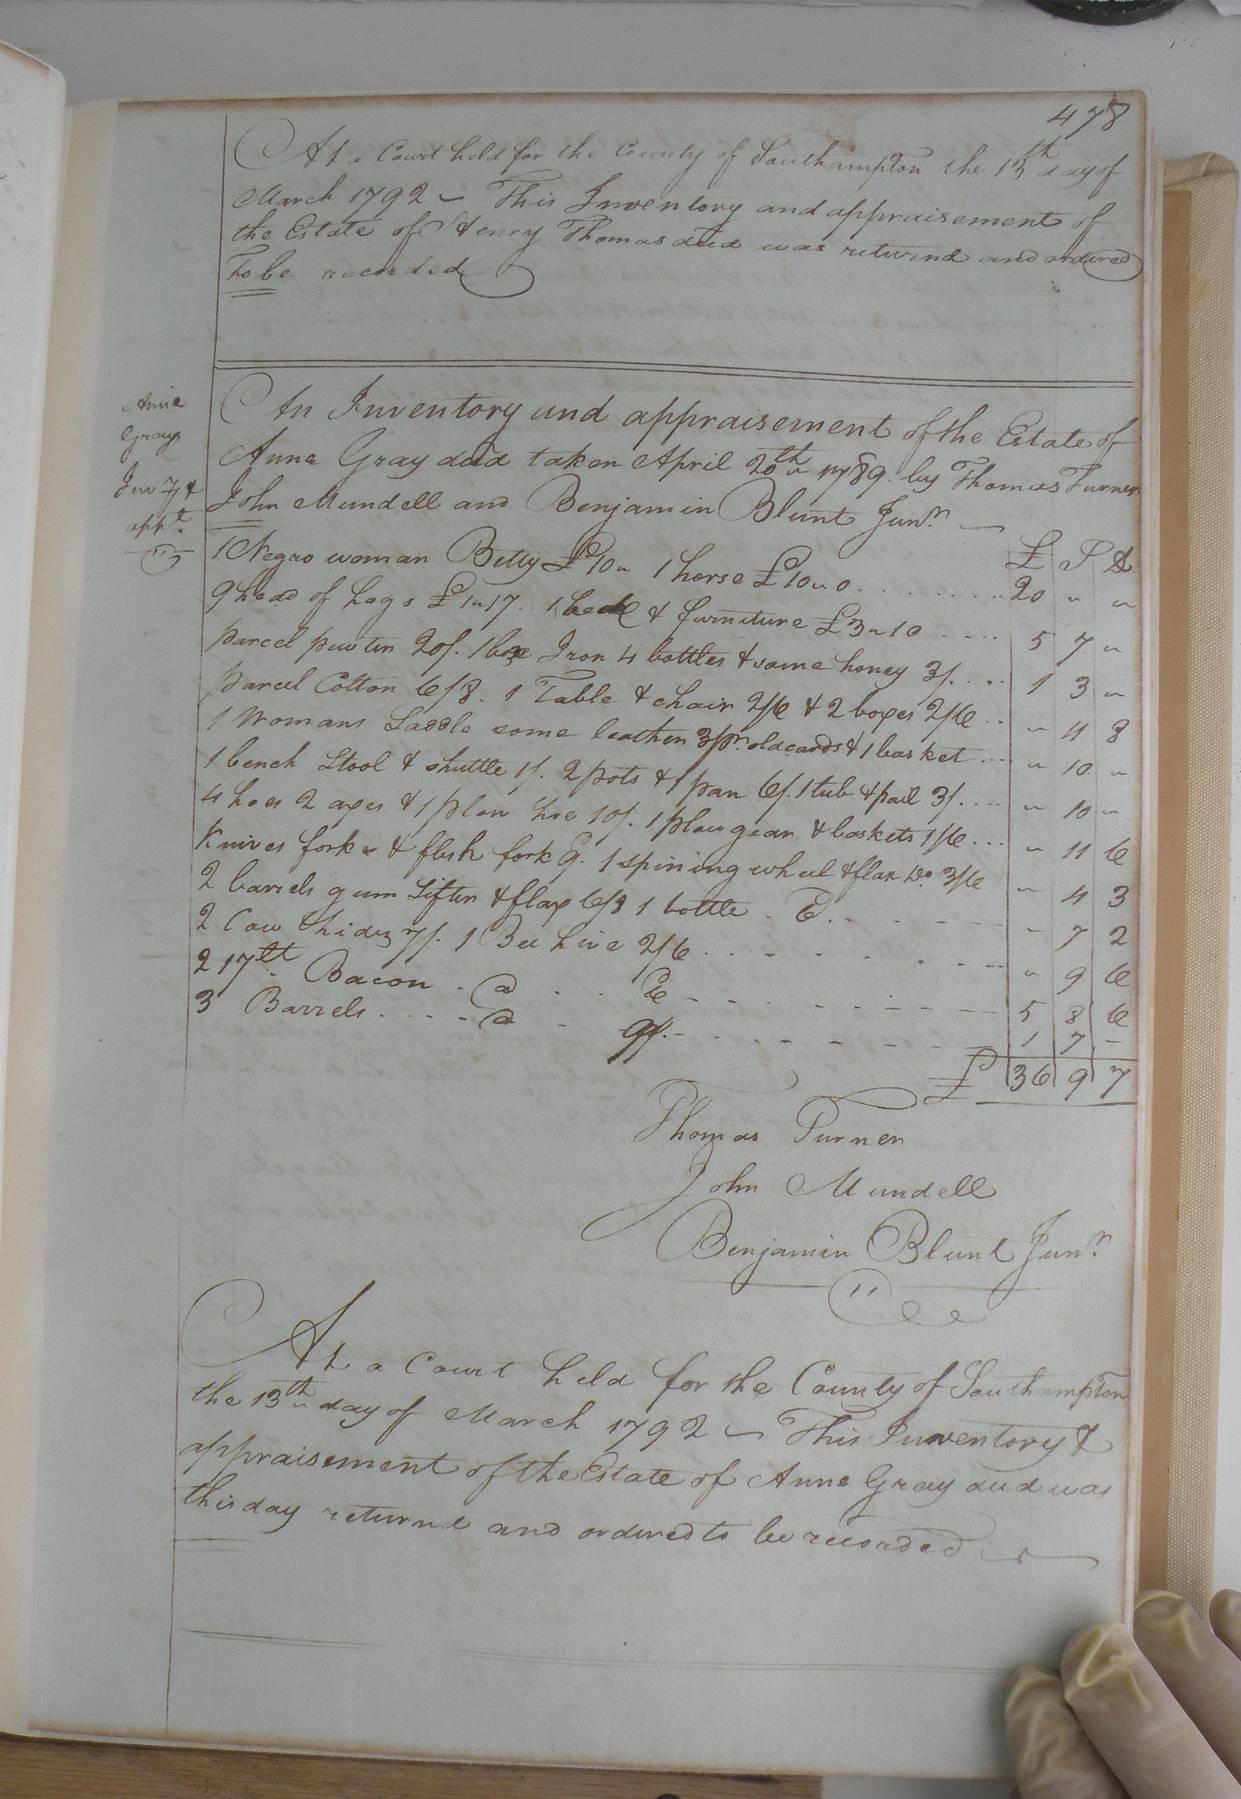 478
At a Court held for the County of Southampton the 13th day of
March 1792 ~ This Inventory and appraisement of
the Estate of Henry Thomas decd was returnd and ordered
to be recorded
Anne
Grays
Inv.y &
appt.
An Inventory and appraisement of the Estate of
Anne Gray decd taken April 20th 1789. by Thomas Turner
John Mundell and Benjamin Blunt Junr.
£ S d
1 Negro woman Betty £10 " 1 horse £10 " 0 ........ 20 " "
9 head of hogs £1 " 17 .. 1 bed & furniture £3 " 10 .... 5 7 "
parcel pewter 20/. 1 box Iron 4 bottles & some honey 3/. ... 1 3 "
parcel Cotton 6/8. 1 Table & chair 2/6 & 2 boxes 2/6 .. " 11 8
1 Womans Saddle some leather 3/ pr. old cards & 1 basket ... " 10 "
1 bench Stool & shuttle 1/. 2 pots & 1 pan 6/. 1 tub & pail 3/. ... " 10 "
4 hoes 2 axes & 1 plow hoe 10/. 1 plow gear & baskets 1/6 ... " 11 6
Knives forks & flesh fork 9. 1 spining wheel & flax Do. 3/6 " 4 3
2 barrels gum Sifter & flax 6/8 1 bottle . 6. - - - - " 7 2
2 Cow hides 7/. 1 Bee hive 2/6 ........ " 9 6
217lt. Bacon . @ . . 6 - - - - - - 5 8 6
3 Barrels .... @ . 9/. - - - - - - 1 7 -
£ 36 9 7
Thomas Turner
John Mundell
Benjamin Blunt Junr.
At a Court held for the County of Southampton
the 13th day of March 1792 ~ This Inventory &
appraisement of the Estate of Anne Gray decd was
this day returnd and ordered to be recorded